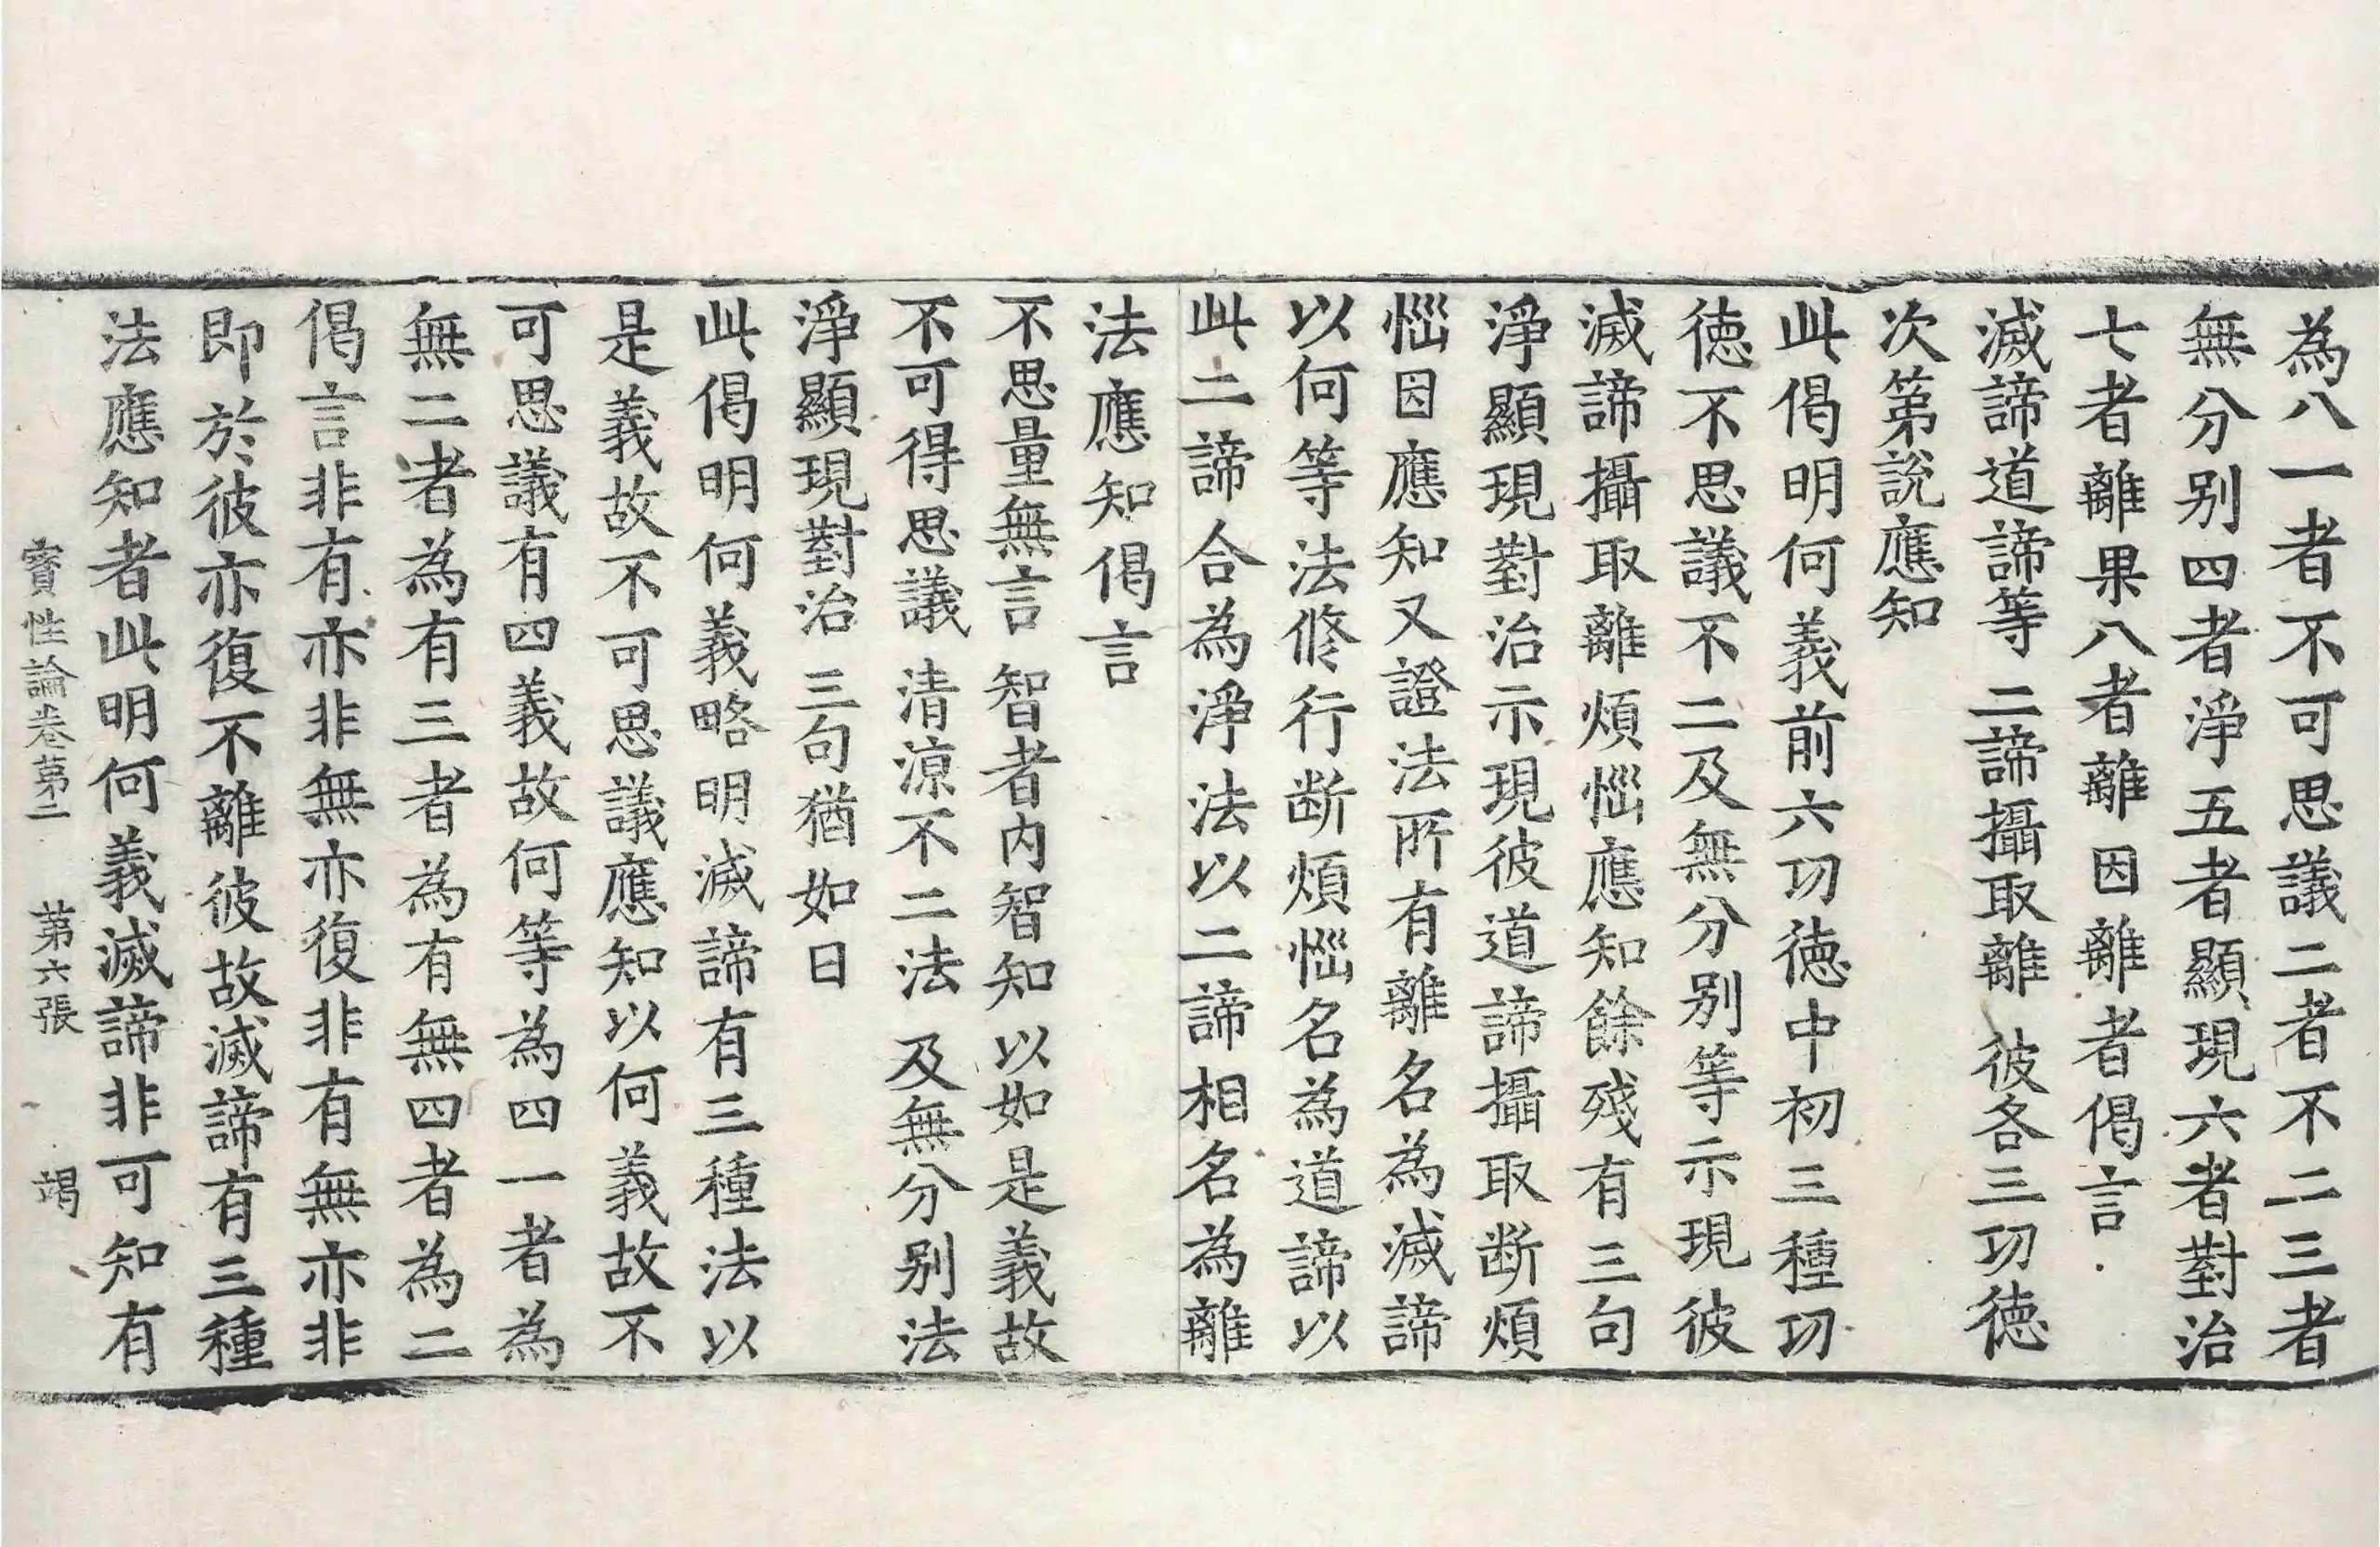 為八一者不可思議二者不二三者
無分別四者淨五者顯現六者對治
七者離果八者離因離者偈言
滅諦道諦等 二諦攝取離 彼各三功德
次第說應知
此偈明何義前六功德中初三種功
德不思議不二及無分別等示現彼
滅諦攝取離煩惱應知餘殘有三句
淨顯現對治示現彼道諦攝取斷煩
惱因應知又證法所有離名為滅諦
以何等法修行斷煩惱名為道諦以
此二諦合為淨法以二諦相名為離
法應知偈言
不思量無言 智者內智知 以如是義故
不可得思議 清涼不二法 及無分別法
淨顯現對治 三句猶如日
此偈明何義略明滅諦有三種法以
是義故不可思議應知以何義故不
可思議有四義故何等為四一者為
無二者為有三者為有無四者為二
偈言非有亦非無亦復非有無亦非
即於彼亦復不離彼故滅諦有三種
法應知者此明何義滅諦非可知有
寶性論卷第二 第六張 竭